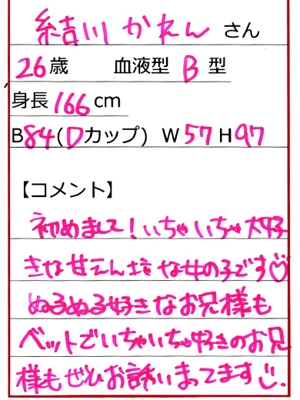 結川 かれん さん
26歳 血液型 B 型
身長 166 cm
B84(Dカップ) W57 H97
【コメント】
初めまして!いちゃいちゃ大好
きな甘えん坊な女の子です♡
ぬるぬる好きなお兄様も
ベットでいちゃいちゃ好きのお兄
様もぜひお誘いまってます